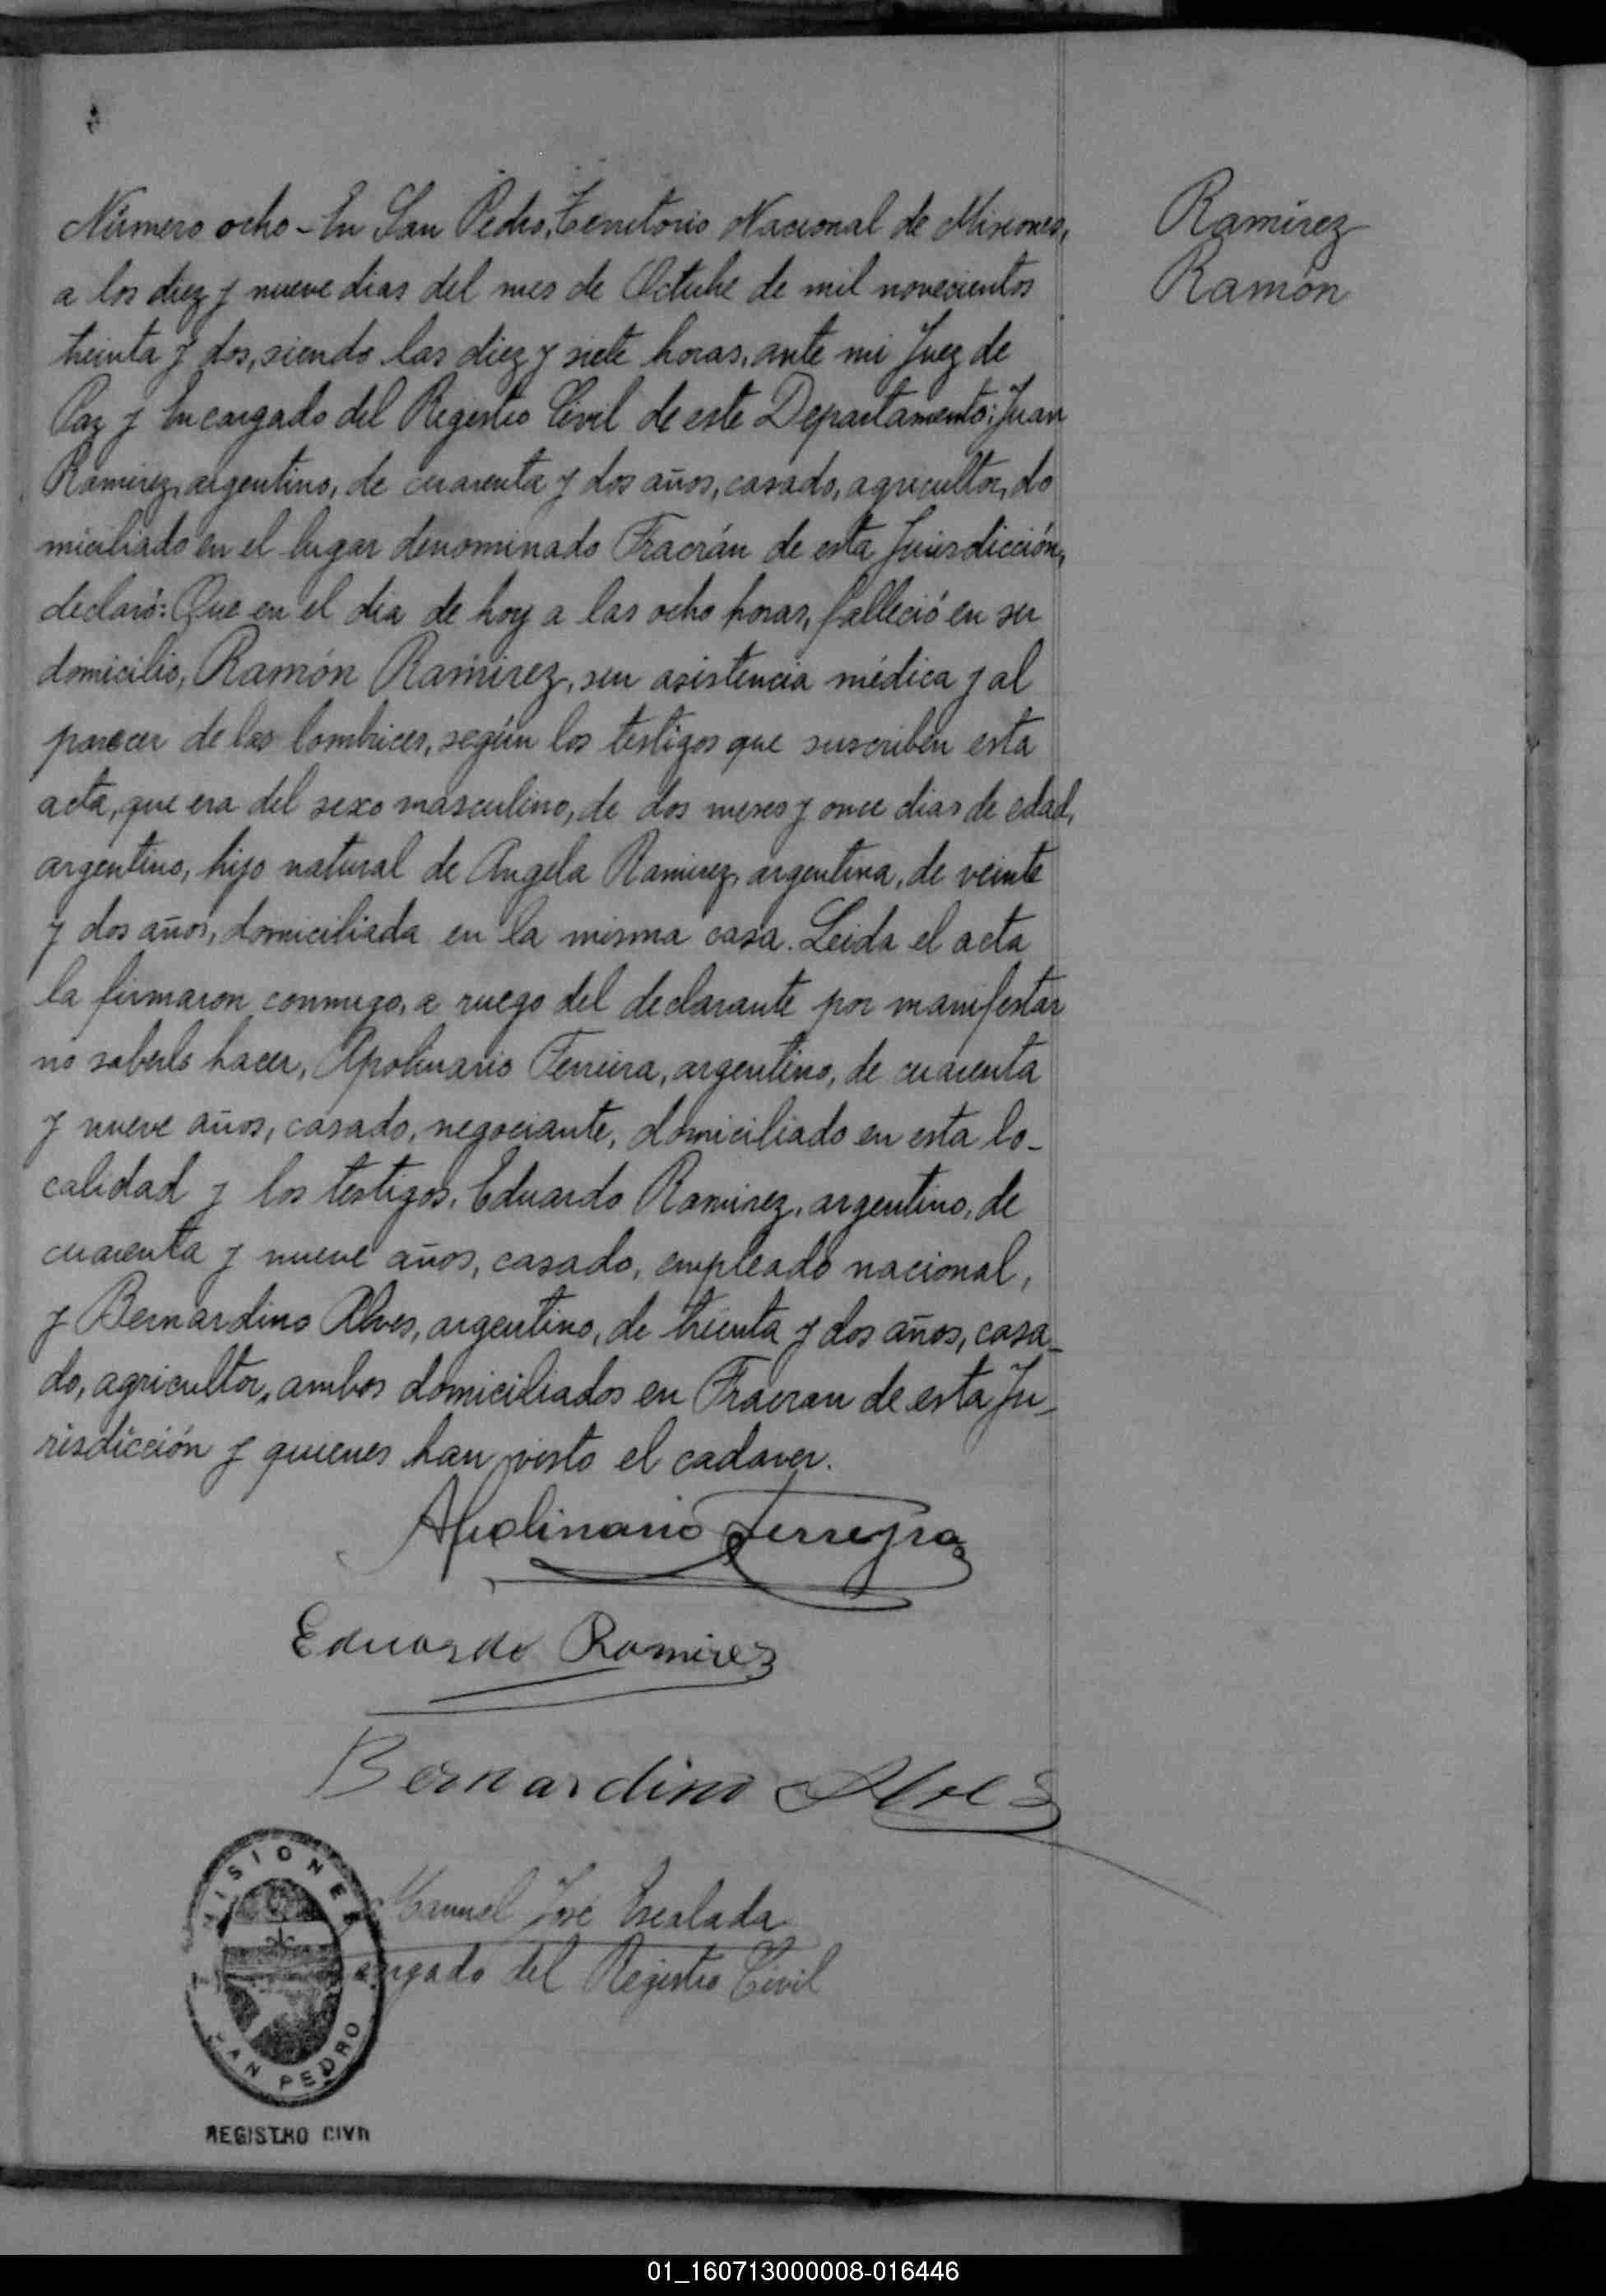 Número ocho - En San Pedro, Territorio Nacional de Misiones,
a los diez y nueve dias del mes de Octubre de mil novecientos
treinta y dos, siendo las diez y siete horas, ante mi Juez de
Paz y Encargado del Registro Civil de este Departamento: Juan
Ramirez, argentino, de cuarenta y dos años, casado, agricultor, do
miciliado en el lugar denominado Fracrán de esta Jurisdicción,
declaró: Que en el dia de hoy a las ocho horas, falleció en su
domicilio, Ramón Ramirez, sin asistencia médica y al
parecer de las lombrices, según los testigos que suscriben esta
acta, que era del sexo masculino, de dos meses y once dias de edad,
argentino, hijo natural de Angela Ramirez, argentina, de veinte
y dos años, domiciliada en la misma casa. Leida el acta
la firmaron conmigo, a ruego del declarante por manifestar
no saberlo hacer, Apolinario Ferreira, argentino, de cuarenta
y nueve años, casado, negociante, domiciliado en esta lo-
calidad y los testigos, Eduardo Ramirez, argentino, de
cuarenta y nueve años, casado, empleado nacional,
y Bernardino Alves, argentino, de treinta y dos años, casa-
do, agricultor, ambos domiciliados en Fracran de esta Ju-
risdicción y quienes han visto el cadaver.
Ramírez
Ramón
Apolinario Ferreyra
Eduardo Ramirez
Bernardino Alves
Manuel José Escalada
argado del Registro Civil
MISIONES
SAN PEDRO
REGISTRO CIVIL
01_160713000008-016446